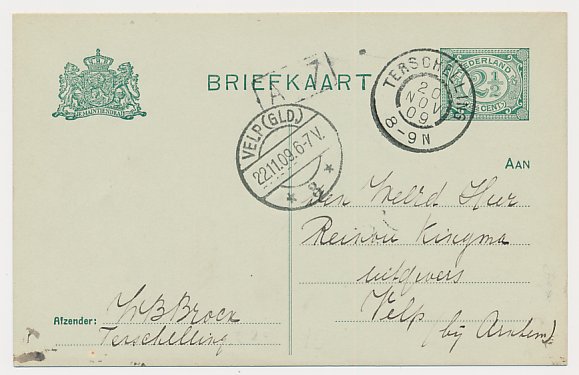 JE MAINTIENDRAI
BRIEFKAART
A 7
TERSCHELLING
20
NOV
09
8-9N
NEDERLAND
2½
CENT
VELP (GLD.)
22.11.09.6-7V.
2
AAN
den Weled Heer
Reinou Kingma
uitgevers
Velp
(bij Arnhem)
Afzender: W B Broex
Terschelling